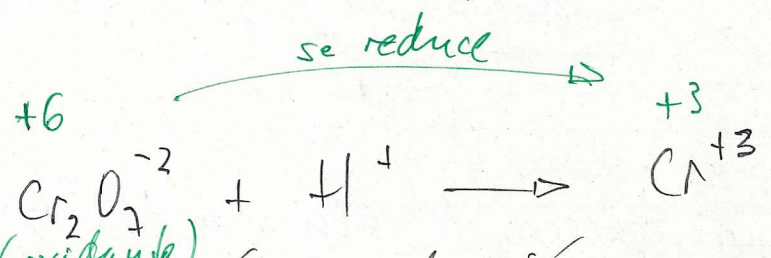 se reduce
+6 +3
Cr₂O₇⁻² + H⁺ → Cr⁺³
(oxidante)